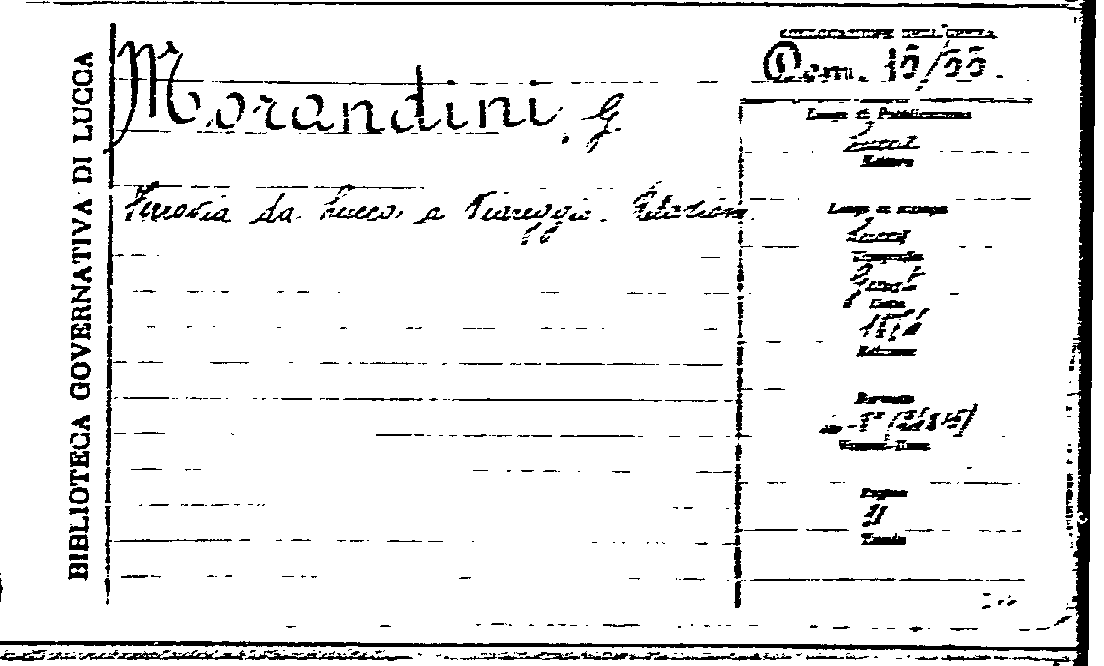 BIBLIOTECA GOVERNATIVA DI LUCCA
Morandini, G.
Ferrovia da Lucca a Viareggio. Relazione
COLLOCAZIONE DELL'OPERA
Luogo di Pubblicazione
Lucca
Editore
Luogo di stampa
Lucca
Tipografia
Giusti
Data
Edizione
Formato
Volumi-Tomo
Pagine
21
Tavole